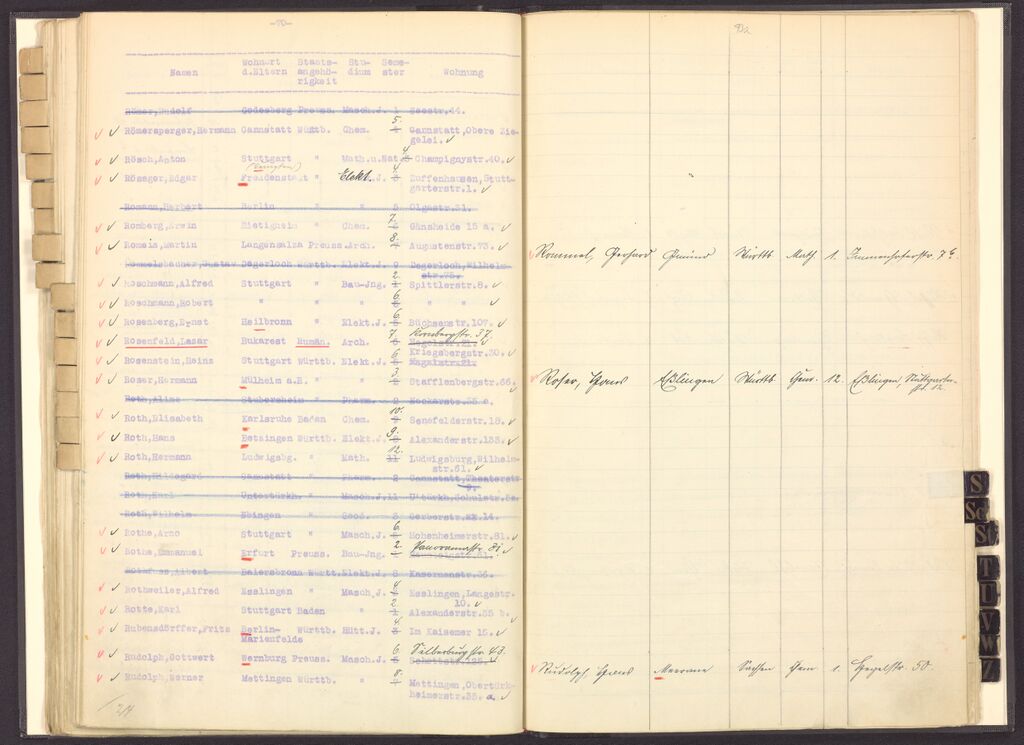 -90-
Namen Wohnort d.Eltern Staats-angehö-rigkeit Stu-dium Seme-ster Wohnung
Römer,Rudolf Godesberg Preuss. Masch.J. 1 Seestr.44.
Römersperger,Hermann Cannstatt Württb. Chem. 5. Cannstatt,Obere Zie-
gelei.
Rösch,Anton Stuttgart " Math.u.Nat. 4 Champignystr.40.
Röseger,Edgar Freudenstadt " Elekt.J. 4 Zuffenhausen,Stutt-
garterstr.1.
Romann,Herbert Berlin " " 5 Olgastr.31.
Romberg,Erwin Bietigheim " Chem. 7. Gänsheide 15 a.
Romeis,Martin Langensalza Preuss. Arch. 8. Augustenstr.73.
Rommelsbacher,Gustav Degerloch Württb. Elekt.J. 9 Degerloch,Wilhelm-
str.75.
Roschmann,Alfred Stuttgart " Bau-Jng. 2. Spittlerstr.8.
Roschmann,Robert " " " 6. " "
Rosenberg,Ernst Heilbronn " Elekt.J. 6 Büchsenstr.107.
Rosenfeld,Lazar Bukarest Rumän. Arch. 7. Hegelstr.21. Kornbergstr. 37.
Rosenstein,Heinz Stuttgart Württb. Elekt.J. 6 Kriegsbergstr.30.
Roser,Hermann Mülheim a.R. " Masch.J. 3 Stafflenbergstr.66.
Roth,Aline Stubersheim " Pharm. 2 Neckarstr.35 c.
Roth,Elisabeth Karlsruhe Baden Chem. 10. Senefelderstr.18.
Roth,Hans Betzingen Württb. Elekt.J. 9. Alexanderstr.133.
Roth,Hermann Ludwigsbg. " Math. 12. 11 Ludwigsburg,Wilhelm-
str.51.
Roth,Hildegard Cannstatt " Pharm. 2 Cannstatt,Theaterstr
9.
Roth,Karl Untertürkh. " Masch.J.11 U'türkh,Schulstr.5a.
Roth,Wilhelm Ebingen " Geod. 3 Gerberstr. 14.
Rothe,Arno Stuttgart " Masch.J. 6. Hohenheimerstr.81.
Rothe,Emmanuel Erfurt Preuss. Bau-Jng. 2. Panoramastr. 8I.
Rothfuss,Albert Baiersbronn Württ.Elekt.J. 8 Kasernenstr.36.
Rothweiler,Alfred Esslingen " Masch.J. 4 Esslingen,Langestr.
10.
Rotte,Karl Stuttgart Baden " 2. Alexanderstr.35 b.
Rubensdörffer,Fritz Berlin- Württb. Hütt.J. 4. Im Kaisemer 15.
Marienfelde
Rudolph,Gottwert Wernburg Preuss. Masch.J. 6 Silberburgstr. 43.
Rudolph,Werner Mettingen Württb. " 8. Mettingen,Obertürk-
heimerstr.35. a.
Rommel, Gerhard Gmünd Württb Math 1.
Roser, Hans Eßlingen Württb. Chem. 12. Eßlingen Stuttgarter-
str. 12.
Rudolph Hans Meerane Sachsen Chem 1. Hegelstr. 50.
S
Sch
St
T
U
V
W
Z